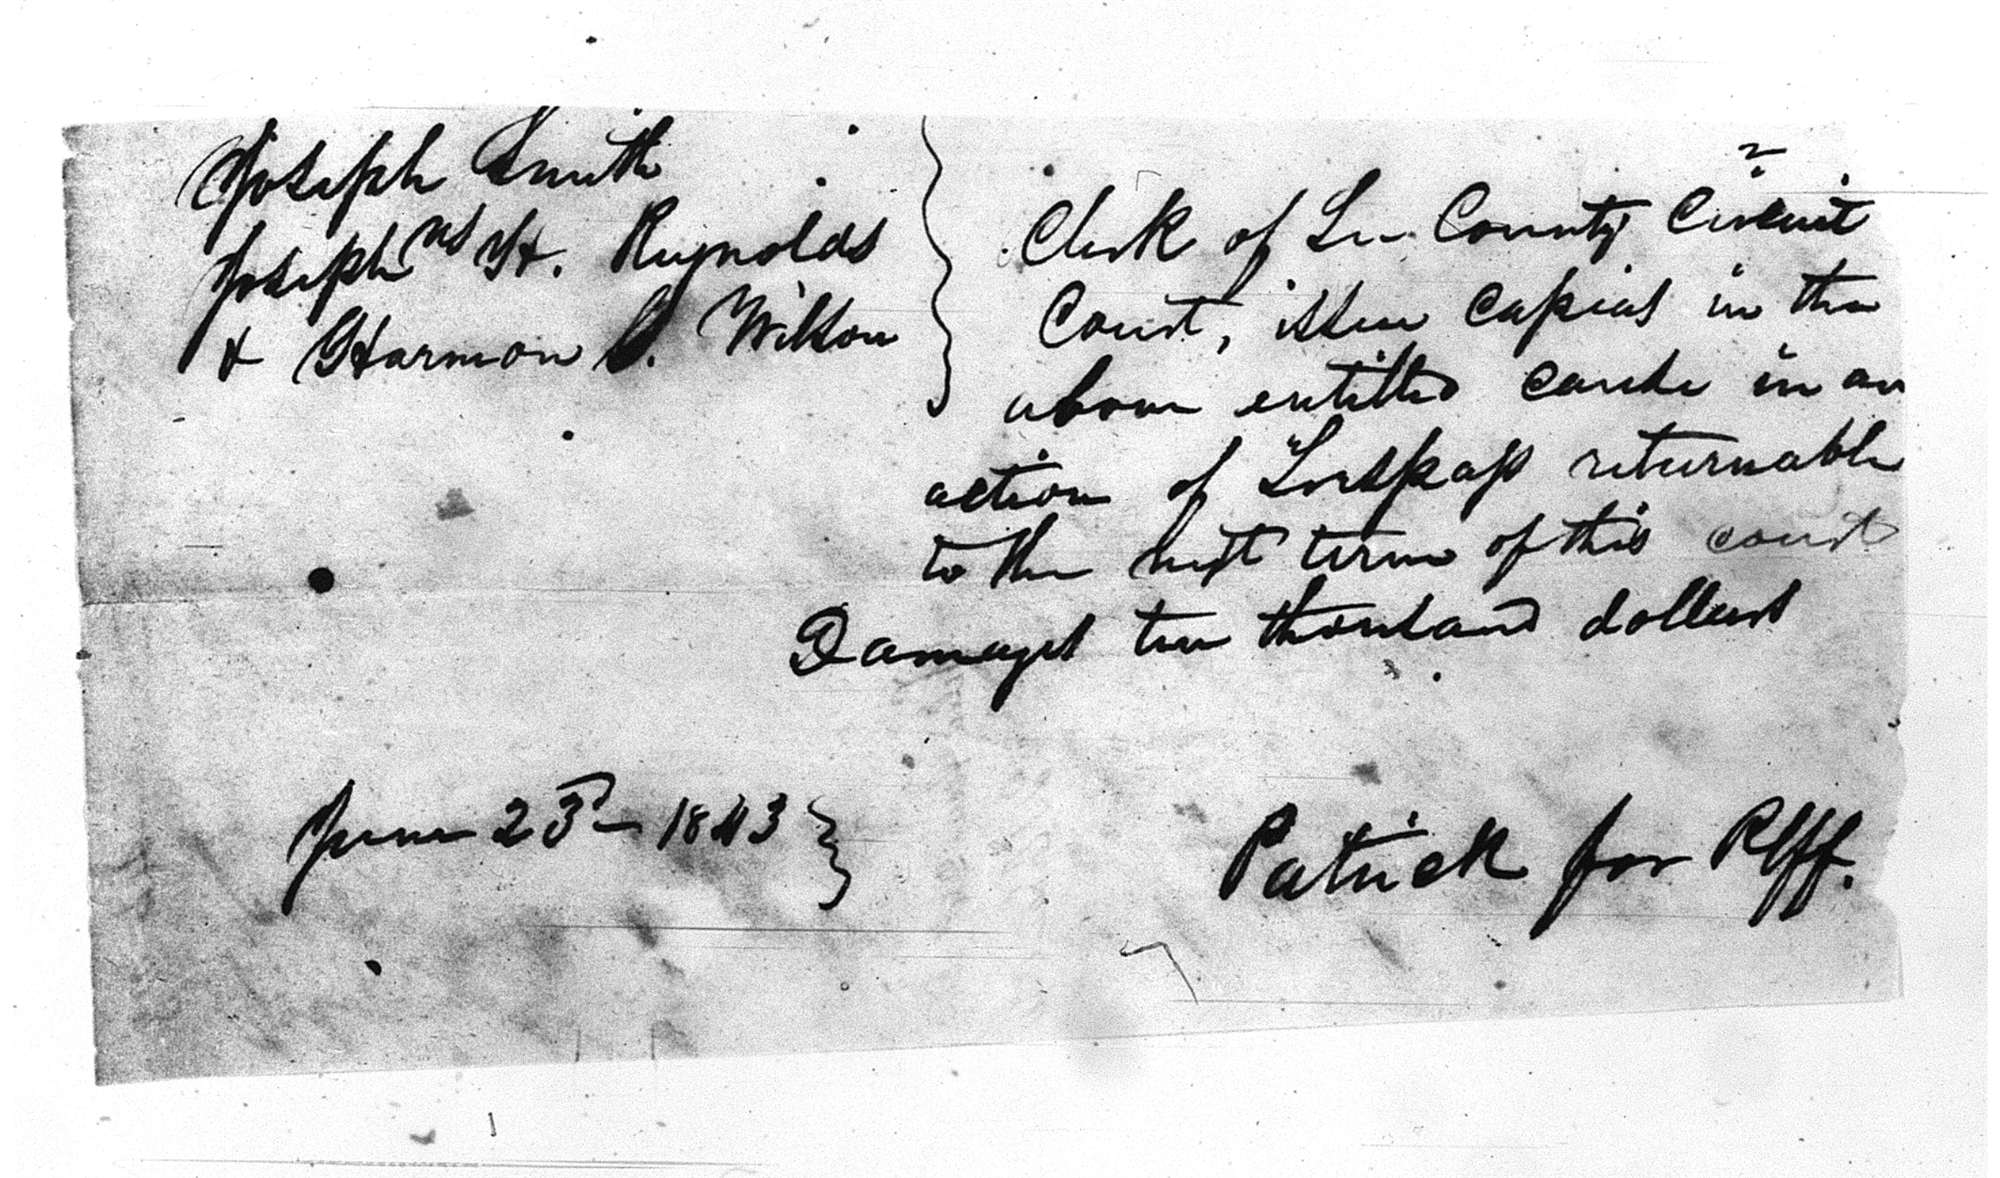 Joseph Smith
vs
Joseph H. Reynolds
& Harmon T. Wilson
Clerk of Lee County Circuit
Court, issue capias in the
above entitled cause in an
action of Trespass returnable
to the next term of this court
Damages ten thousand dollars
June 23d 1843
Patrick for Plff.